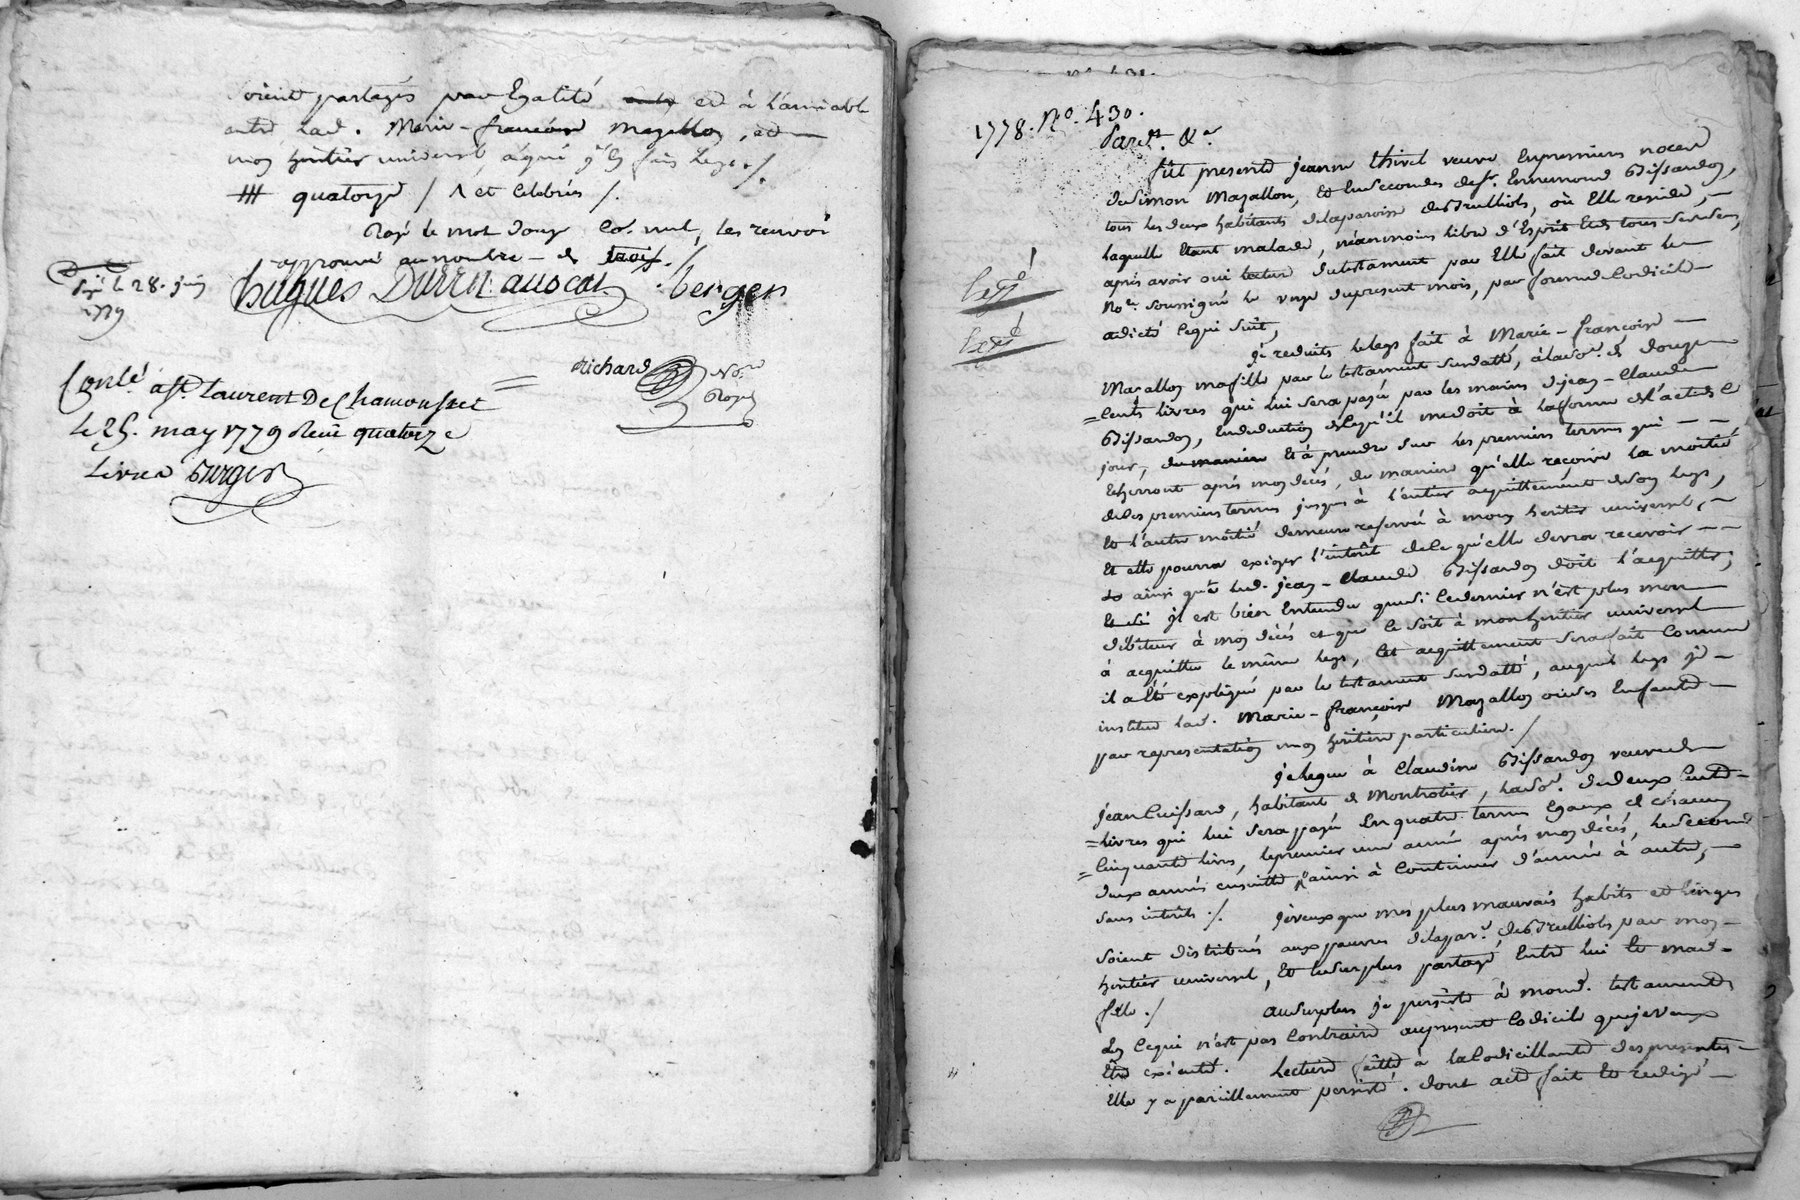 soient partagés par Egalité et à l'amiable
entre lad. Marie-françoise Mazallon, et
mon heritier universel, à qui j'en fais Legs ./.
quatorze / et Celebrés /.
Rayé le mot douze Co. nul, les renvoi
approuvé au nombre de trois ./
hugues Durr auocat berger
le 28. juin
1779
richard No.re
Roya
Conlé a St. Laurent De Chamousset
Le 25. may 1779 Reçu quatorze
Livres Berger
1778. No. 430.
Pard.t &a
fût presente jeanne thivel veuve En premiers noces
de Simon Mazallon, et En Secondes de sr. Ennemond Bissardon,
tous les deux habitants de la paroisse des Brulliols, où Elle reside,
laquelle Etant malade, néanmoins libre d'Esprit et de tous ses sens,
après avoir oui lecture du testament par Elle fait devant le
No.re Soussigné le onze du present mois, par forme de Codicile
a dicté Ce qui suit,
Expé
Expé
je reduits le legs fait à Marie-françoise
Mazallon ma fille par le testament Susdatté, à la so.e de douze
=Cents livres qui lui sera payé par les mains de jean-Claude
Bissardon, En deduction de Ce qu'il me doit à la forme de l'acte de Ce
jour, de maniere et à prendre sur les premiers termes qui
Echerront après mon décès, de maniere qu'elle reçoive la moitié
de Ces premiers termes jusques à l'entier acquittement de son legs,
et l'autre moitié demeure reservée à mon heritier universel,
Et elle pourra exiger l'intérêt de Ce qu'elle devra recevoir
ainsi que led. jean-Claude Bissardon doit l'acquitter,
il est bien Entendu que si Ce dernier n'est plus mon
débiteur à mon décès et que Ce soit à mon heritier universel
à acquitter le même legs, Cet acquittement sera fait Comme
il a Eté expliqué par le testament Susdatté, auquel legs je
institue lad. Marie-françoise Mazallon ou ses Enfants
par representation mon heritiere particuliere. /
je legue à Claudine Bissardon veuve de
jean Cuissard, habitant de Montrotier, la So.e de deux Cents
=livres qui lui sera payé En quatre termes Egaux de chacun
=Cinquante livres, le premier une année après mon décès, le second
deux années ensuitte & ainsi à Continuer d'année à autre,
sans intérêts ./. je veux que mes plus mauvais habits et linges
soient distribués aux pauvres de la par.e des Brulliols par mon
heritier universel, Et le surplus partagé Entre lui et mad.
fille. / au surplus je persiste à mond. testament
En Ce qui n'est pas Contraire au present Codicile que je veux
Etre exécuté. Lecture faitte à la Codicillante des presentes
Elle y a pareillement persisté. Dont acte fait Et redigé